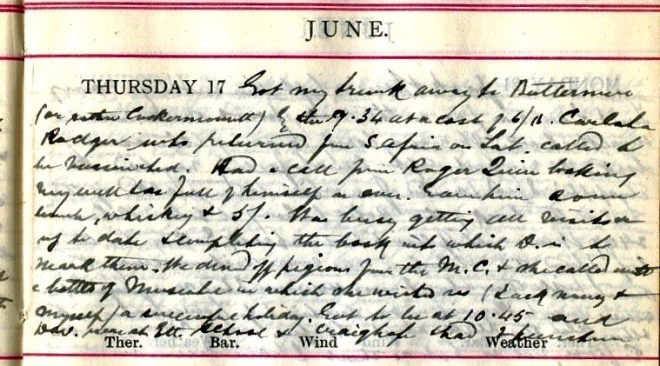 JUNE.
THURSDAY 17 Got my trunk away to Buttermere
(or rather Cockermouth) by the 9.34 at a cost of 6/11.
Rodger who returned from S. Africa on Sat. called to
be vaccinated. Had a call from Roger Quin looking
very well & as full of himself as ever. Gave him some
lunch, whiskey & 5/. Was busy getting all visits
up to date & completing the book into which D. is to
mark them. We dined off pigeons from the M.C. & she called with
a bottle of Muscale in which she wished us (Zack many &
myself) a successful holiday. Got to bed at 10.45 and
was at Ett. School & Craighop
Ther. Bar. Wind Weather